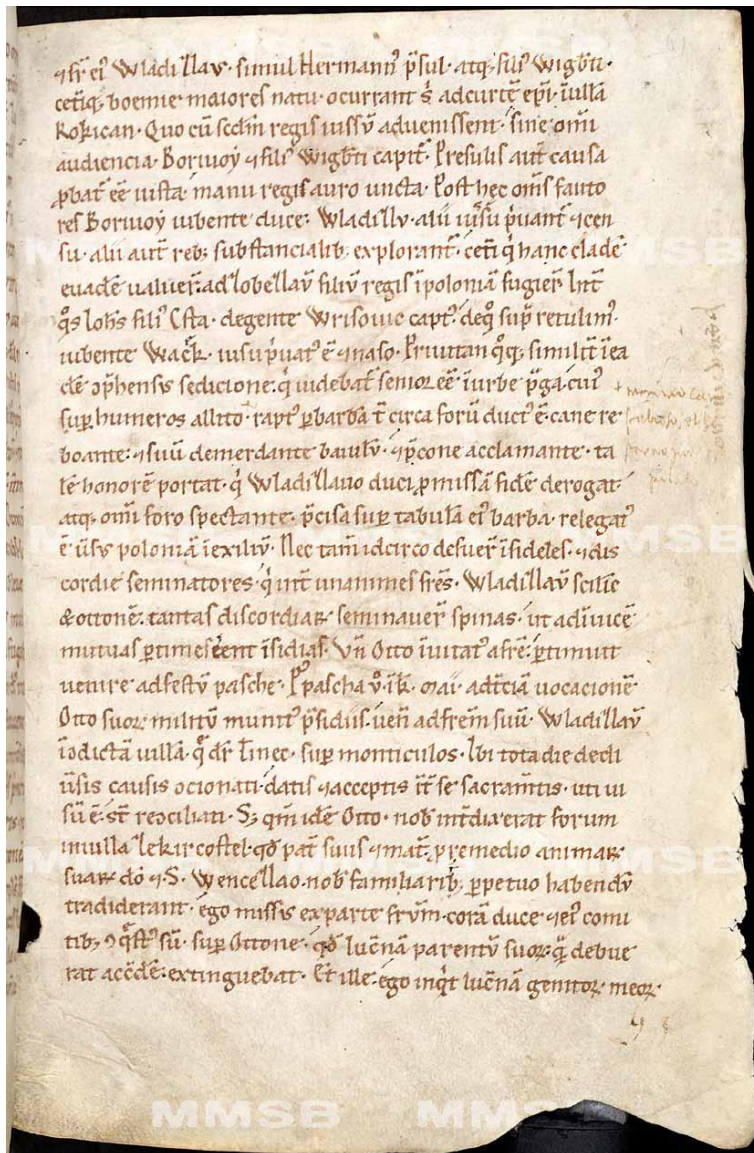 ⁊ fr̄ ei᾽ Wladiſlav · ſimul Hermann᾽ p̄ſul · atq; fili᾽ Wigb̄ti ·
ceƚiq; boemie maiores natu · ocurrant s̄ ad curtē ep̄i · ī uillā
Rokican · Quo cū ſcdm̄ regis iuſſū adveniſſent · ſine om̄i
audiencia · Borivoẏ ⁊ fili᾽ Wigb̄ti capit̄ · Preſulis aut̄ cauſa
ꝓbat̄ eē iuſta · manu regis auro uncta · Poſt hec om̄ſ fauto
reſ Borivoẏ iubente duce · Wladiſlv · alii p̄uant̄ ⁊ cen
ſu · alii aut̄ reb; ſubſtancialib; explorant̄ · cet̄i q̄ hanc cladē
euadē ualuer̄ · ad ſobeſlav̄ filiv̄ regis ī poloniā fugier̄ · Int̄
q̄s Ioh̄s fili᾽ Cſta · degente Wriſovic capt᾽ · deq̄ ſup̄ retulim᾽ ·
iubente Wack̄ · uiſu p̄uat᾽ ē ⁊ naſo · Privitan q̄q; ſimilit̄ ī ea
dē op̄henſis ſedicione · q̄ uidebat̄ ſenior eē ī urbe p̄ga · cui᾽
ſup̄ humeros allito · rapt᾽ ꝑ barbā t̄ circa forū duct᾽ ē · cane re
boante · ⁊ ſuū demerdante baiulv̄ · ⁊ p̄cone acclamante · ta
lē honorē portat · q̄ Wladiſlauo duci ꝓmiſſā fidē derogat ·
atq; om̄i foro ſpectante · p̄ciſa ſup̄ tabulā ei᾽ barba · relegat᾽
ē ūſ; poloniā ī exiliv̄ · Nec tam̄ idcirco defuer̄ īfideles · ⁊ diſ
cordie ſeminatores · q̄ int̄ unanimes fr̄es · Wladiſlav̄ ſcilic̄
& ottonē · tantas diſcordiaꝝ · ſeminaver̄ ſpinas · ut ad īuicē
mutuas ꝑtimeſcerent īſidias · Vn̄ Otto īuitat᾽ a fr̄e · ꝑtimuit
uenire ad feſtv̄ paſche · P᾽ paſcha ꝟ · ī k̄ · mai · ad t̄ciā uocacionē
Otto ſuoꝝ militv̄ munit᾽ p̄ſidiis · uen̄ ad fr̄em ſuū · Wladiſlav̄
ī odictā uillā · q̄ dr̄ Tinec · ſup̄ monticulos · Ibi tota die de di
ūſis cauſis ocionati · datis ⁊ acceptis īt̄ ſe ſacram̄tis · uti ui
ſū ē · ſt̄ recōciliati · S; qm̄ idē Otto · nob̄ int̄dixerat forum
in uilla ſekir coſtel · qd̄ pat̄ ſuus ⁊ mat̄ · ꝓ remedio animaꝝ
ſuaꝝ dō ⁊ · S · Wenceſlao · nob̄ familiarib; · ꝑpetuo habendv̄
tradiderant · ego miſſus ex parte fr̄vm · corā duce ⁊ ei᾽ comi
tib; ꝯq̄ſt᾽ ſū · ſup̄ Ottone · qd̄ luc̄nā parentv̄ ſuoꝝ · q̄ debue
rat acc̄dē · extinguebat · Et ille · ego inq̄t luc̄nā genitoꝝ meoꝝ ·